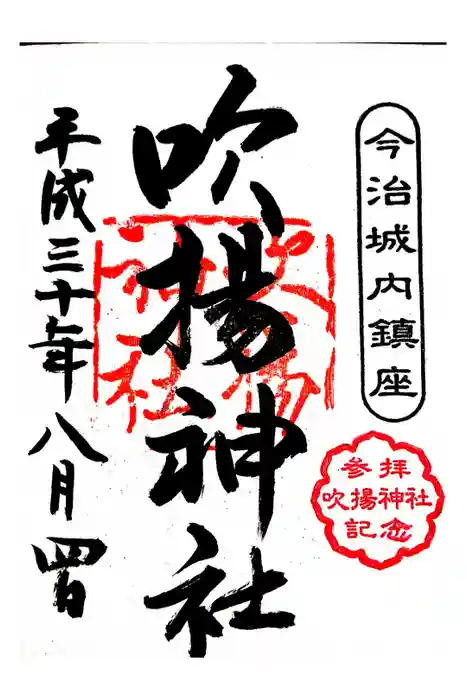 今治城内鎮座
吹揚神社
平成三十年八月四日
吹揚
神社
参拝
吹揚神社
記念